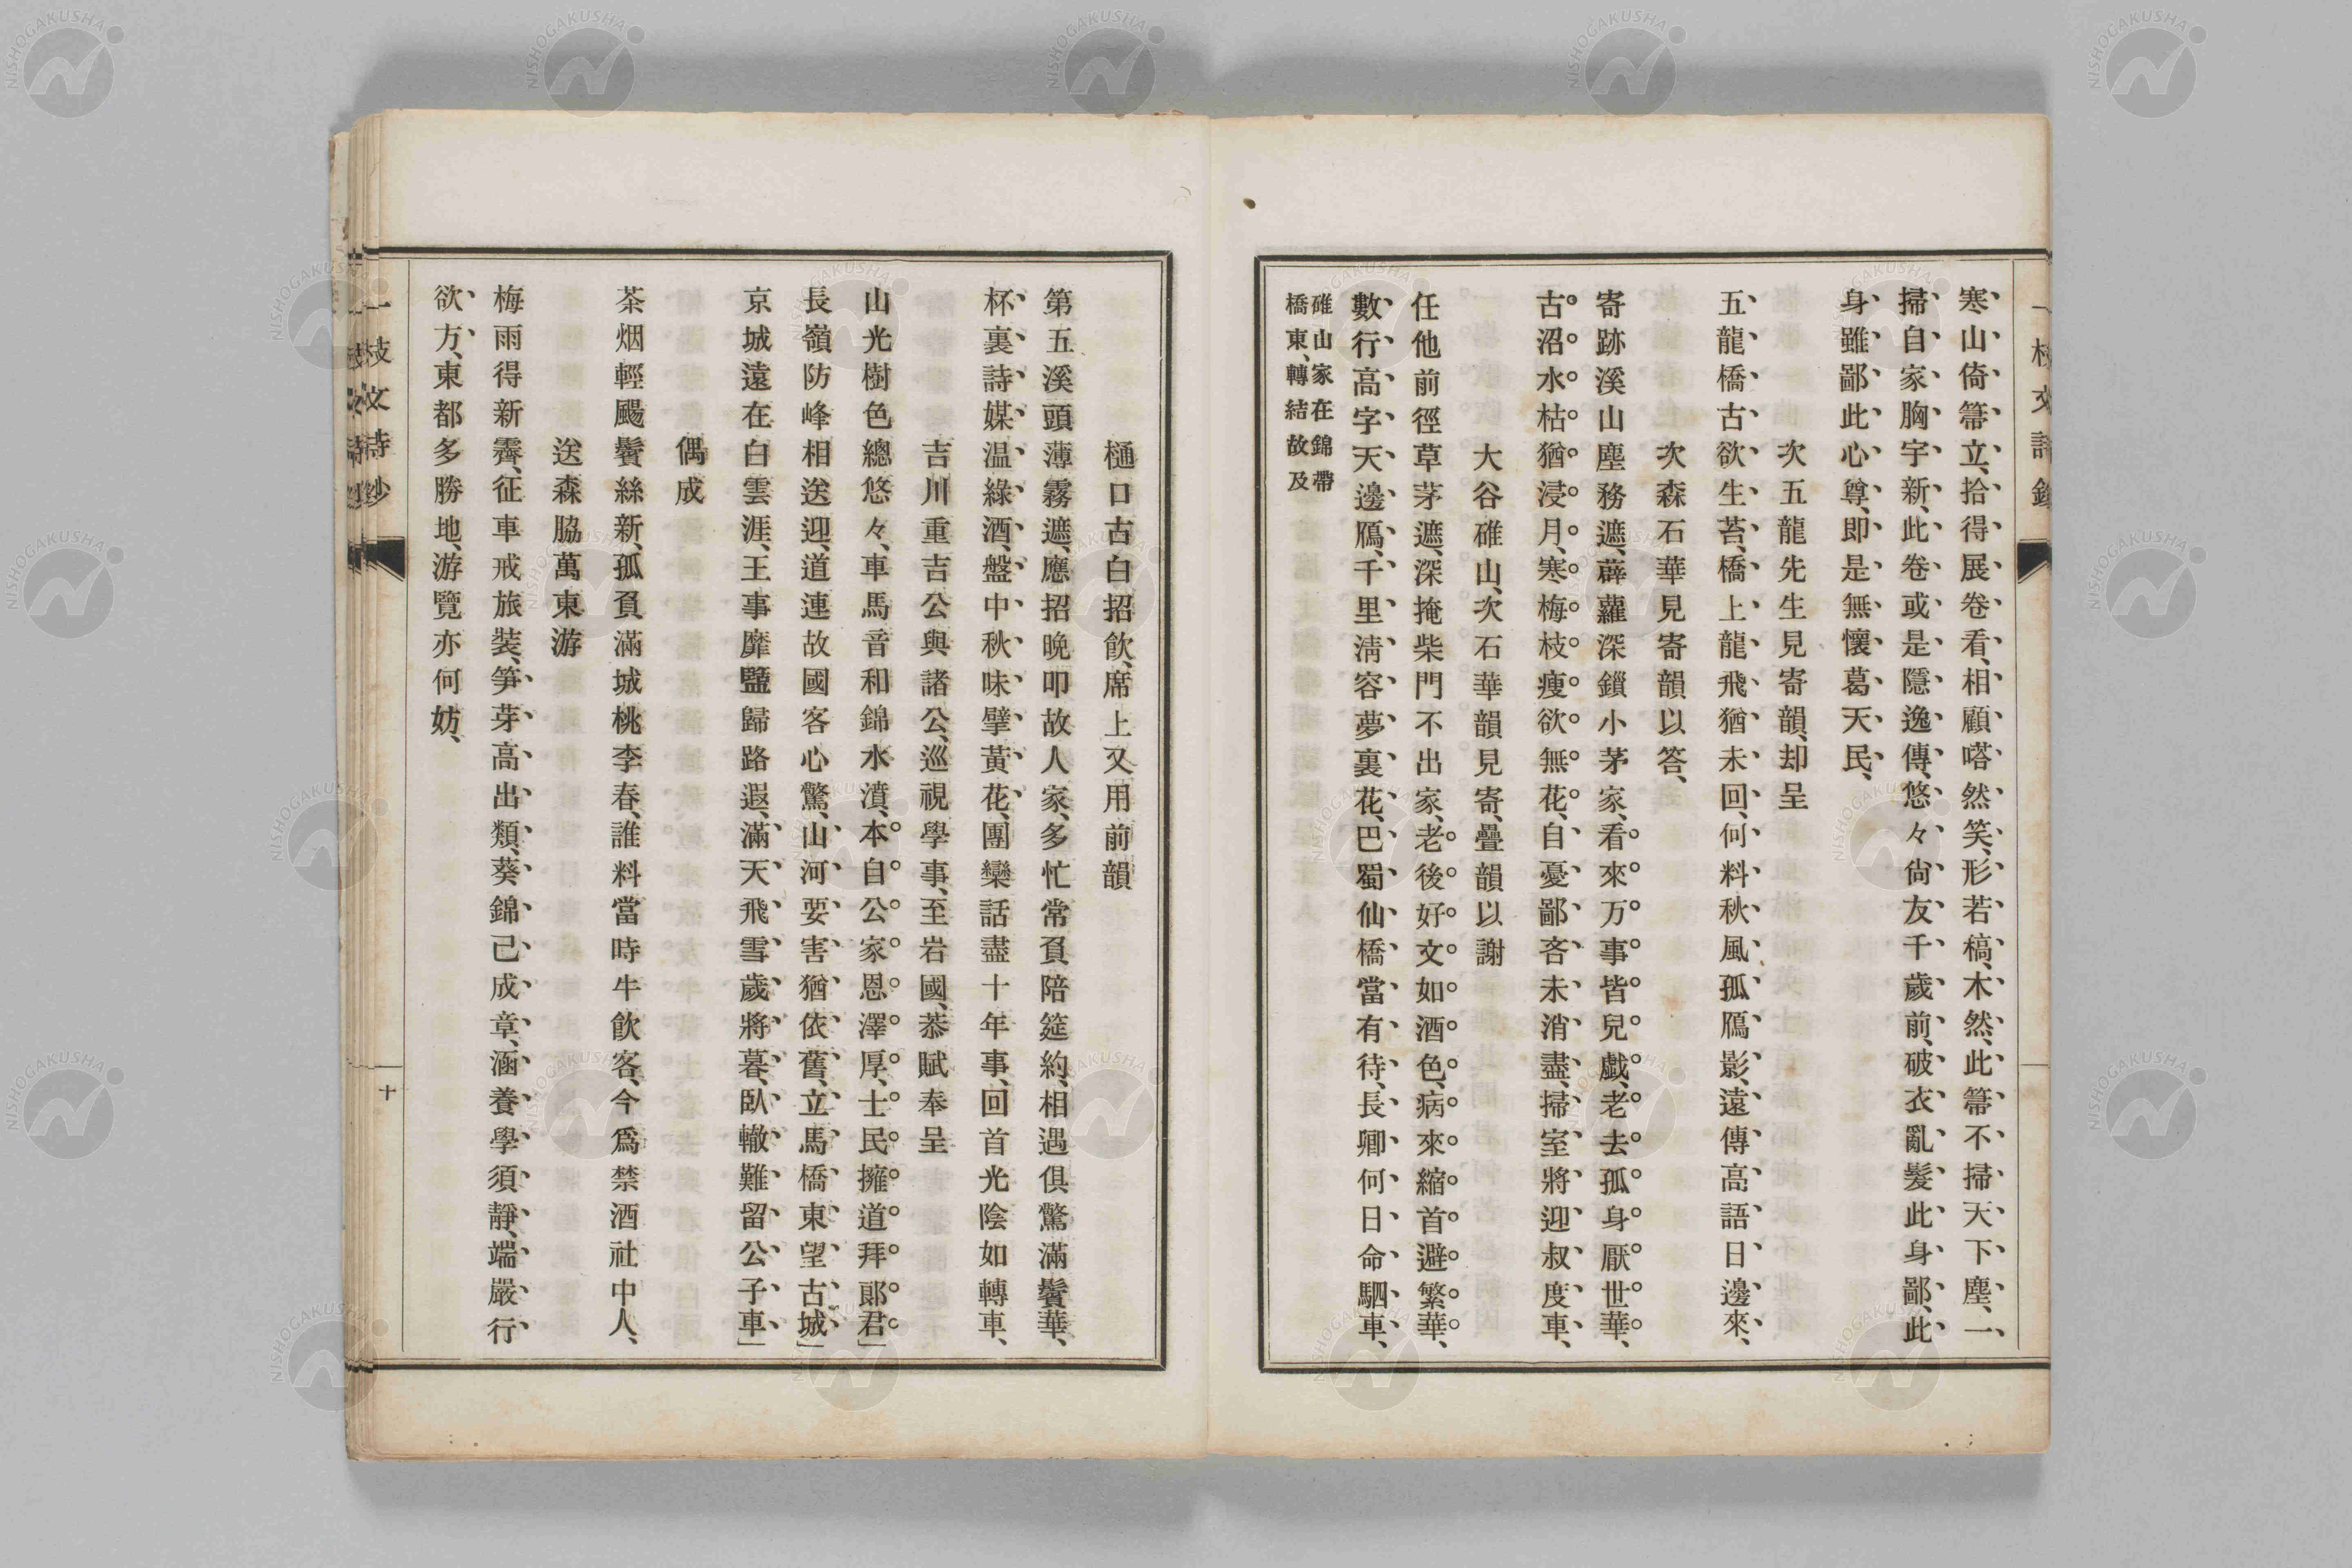 寒山倚箒立、拾得展卷看、相顧嗒然笑、形若槁木然、此箒不掃天下塵、一
掃自家胸宇新、此卷或是隱逸傳、悠々尙友千歲前、破衣亂髮此身鄙、此
身雖鄙此心尊、即是無懷葛天民、
次五龍先生見寄韻、却呈
五龍橋古欲生苔、橋上龍飛猶未回、何料秋風孤鴈影、遠傳高語日邊來、
次森石華見寄韻以答、
寄跡溪山塵務遮、薜蘿深鎖小茅家、看來万事皆兒戲、老去孤身厭世華、
古沼水枯猶浸月、寒梅枝瘦欲無花、自憂鄙吝未消盡、掃室將迎叔度車、
大谷碓山、次石華韻見寄、疊韻以謝
任他前徑草茅遮、深掩柴門不出家、老後好文如酒色、病來縮首避繁華、
數行高字天邊鴈、千里淸容夢裏花、巴蜀仙橋當有待、長卿何日命駟車、
碓山家在錦帶
橋東、轉結故及
樋口古白招飮、席上又用前韻
第五溪頭薄霧遮、應招晩叩故人家、多忙常負陪筵約、相遇俱驚滿鬢華、
杯裏詩媒温綠酒、盤中秋味擘黃花、團欒話盡十年事、回首光陰如轉車、
吉川重吉公與諸公、巡視學事、至岩國、恭賦奉呈
山光樹色總悠々、車馬音和錦水濆、本自公家恩澤厚、士民擁道拜郞君」
長嶺防峰相送迎、道連故國客心驚、山河要害猶依舊、立馬橋東望古城」
京城遠在白雲涯、王事靡盬歸路遐、滿天飛雪歲將暮、臥轍難留公子車」
偶成
茶烟輕颺鬢絲新、孤負滿城桃李春、誰料當時牛飮客、今爲禁酒社中人、
送森脇萬東游
梅雨得新霽、征車戒旅装、笋芽高出類、葵錦已成章、涵養學須靜、端嚴行
欲方、東都多勝地、游覽亦何妨、
一枝文詩鈔
十